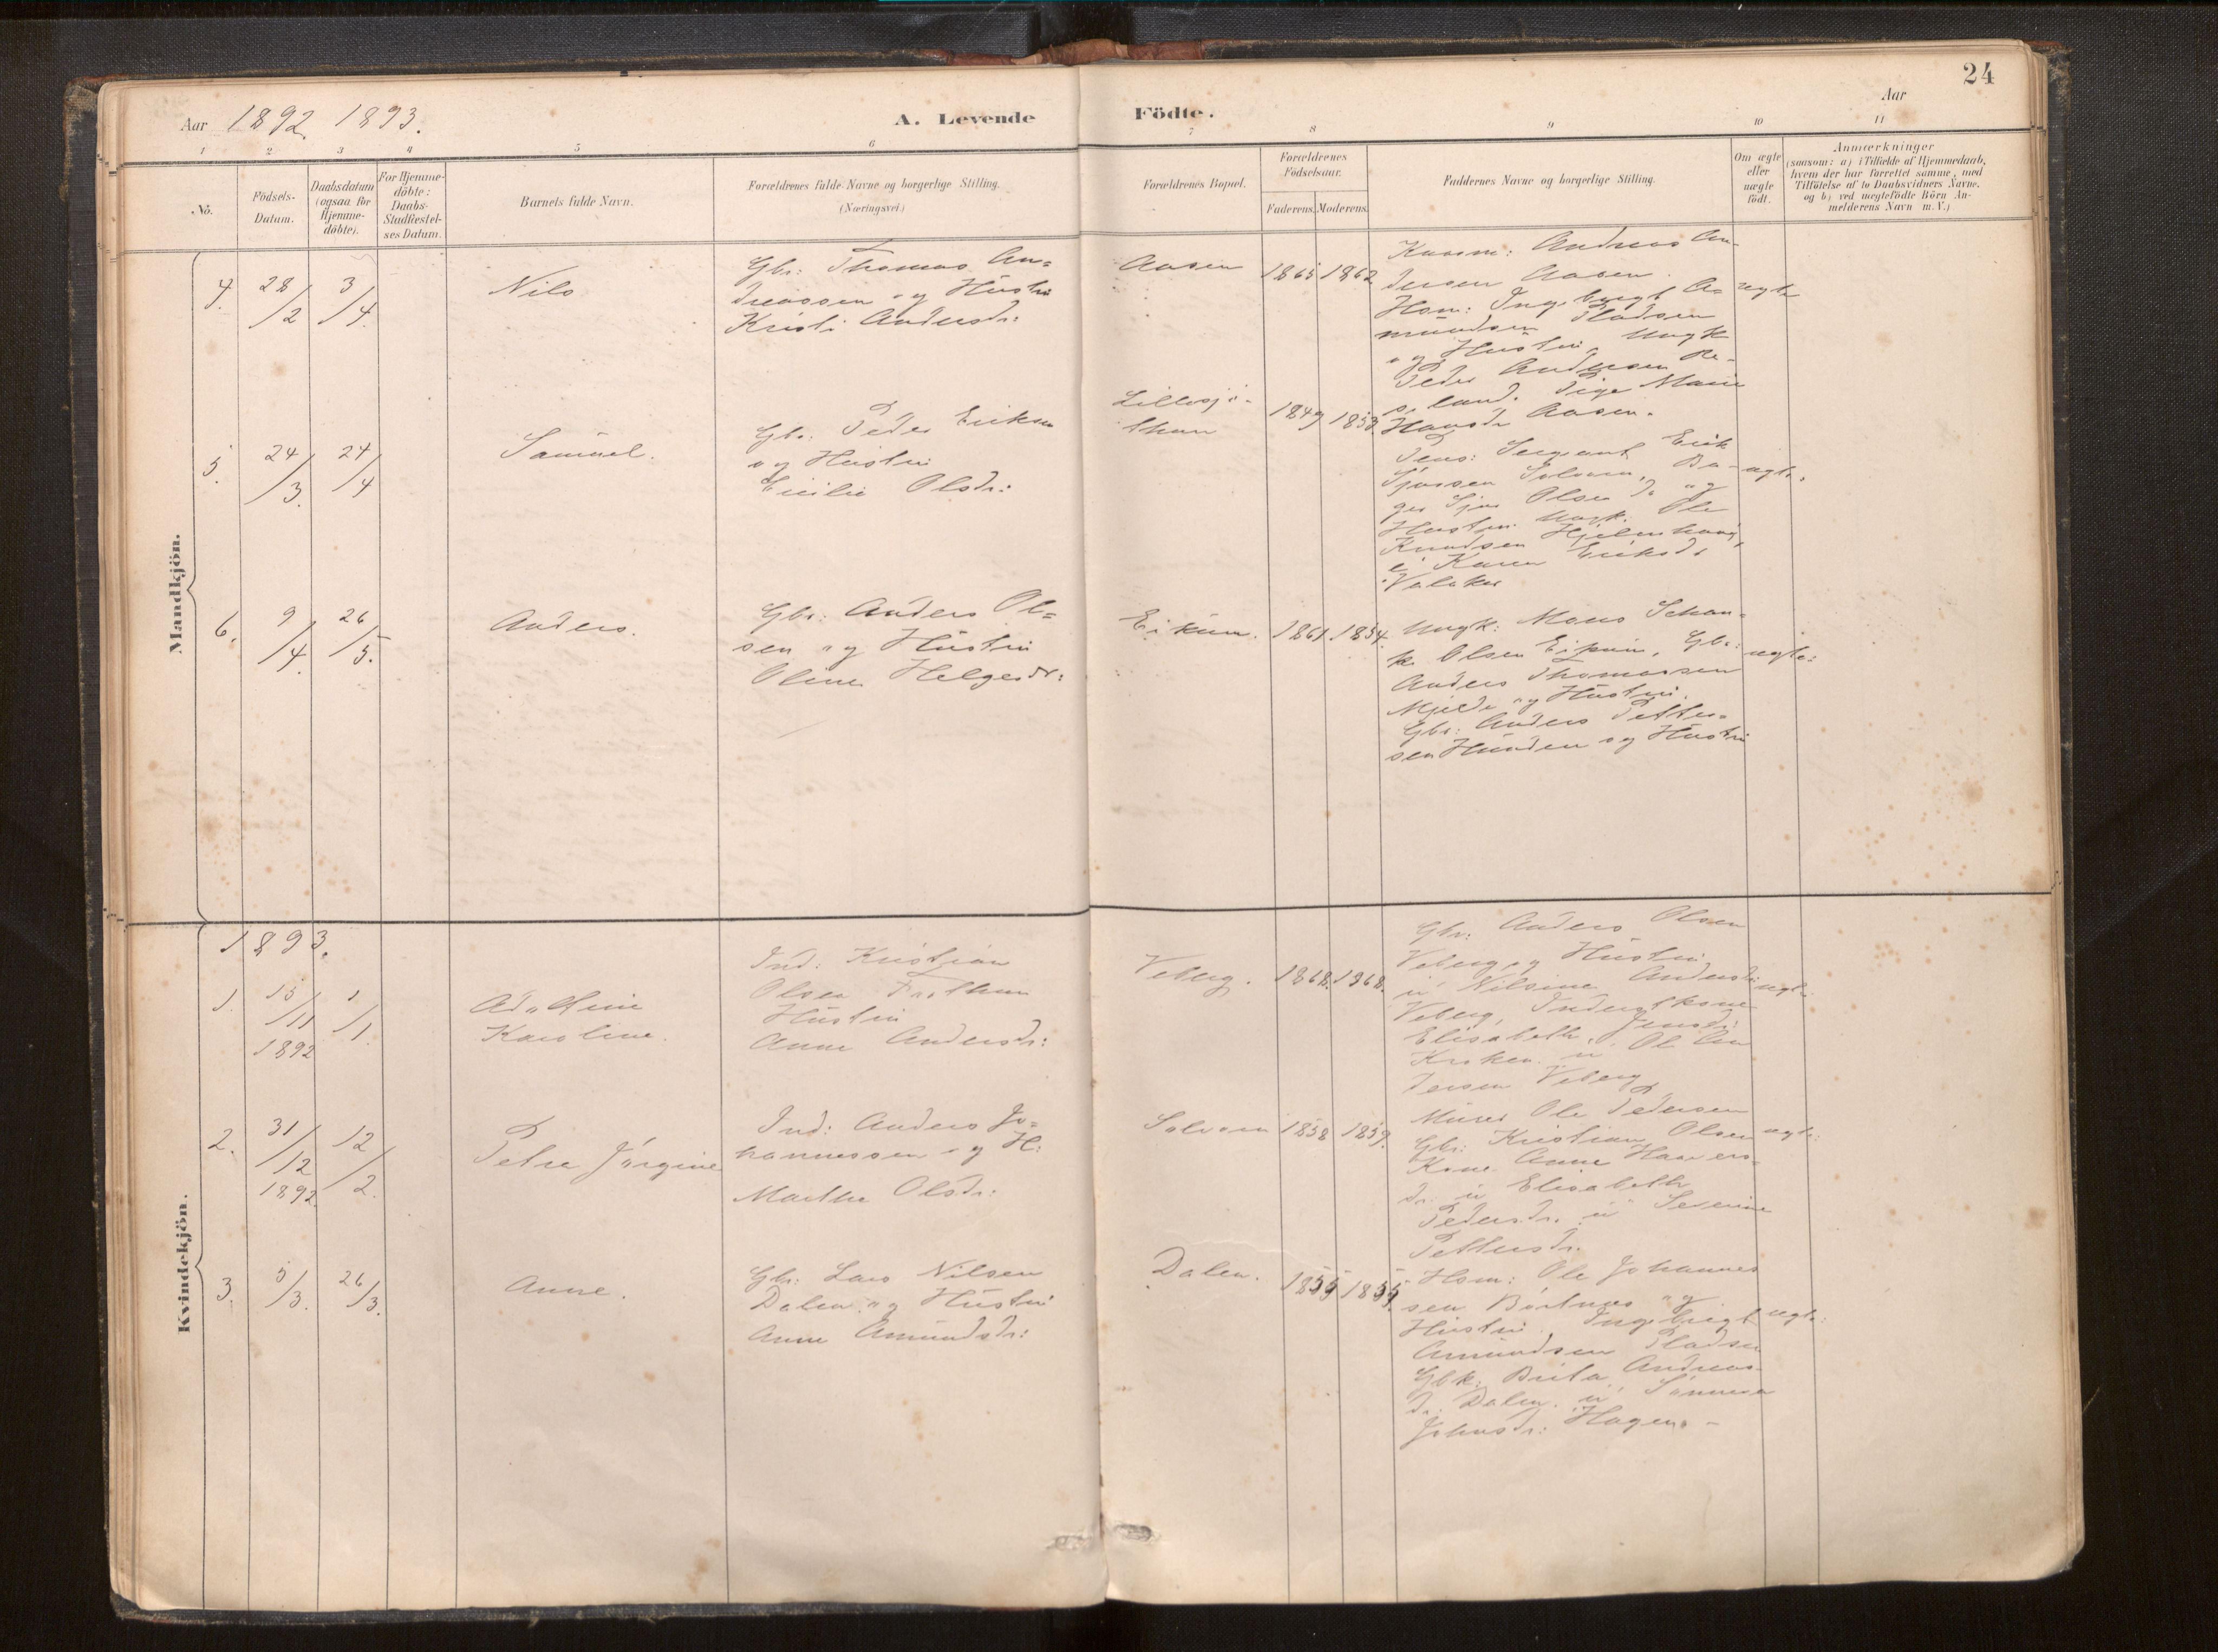 24
Aar 1892. 1893.
A. Levende
Födte.
Aar
1 2 3 4 5 6 7 8 9 10 11
No.
Födsels-
Datum.
Daabsdatum
(ogsaa for
Hjemme-
döbte).
For Hjemme-
döbte:
Daabs-
Stadfæstel-
ses Datum.
Barnets fulde Navn.
Forældrenes fulde Navne og borgerlige Stilling.
(Næringsvei.)
Forældrenes Bopæl.
Forældrenes
Födselsaar.
Faderens. Moderens.
Faddernes Navne og borgerlige Stilling.
Om ægte
eller
uægte
födt.
Anmærkninger
(saasom: a) i Tilfælde af Hjemmedaab,
hvem der har forrettet samme, med
Tilföielse af to Daabsvidners Navne.
og b) ved uægtefödte Börn An-
melderens Navn m. V.)
Mandkjön.
4. 28/2 3/4.
Nils
Gbr: Thomas An=
dreassen og Hustru
Kristi Andersdr:
Aasen
1865 1862
Kaarm: Andreas An-
dersen Aasen.
Hsm: Ingebrigt A=
mundsen Pladsen
og Hustru, Ungk
Peder Andersen Re-
seland. Pige Marie
Hansdr Aasen.
ægte
5. 24/3. 24/4
Samuel.
Gbr: Peder Eriksen
og Hustru
Cicilie Olsdr:
1849 1853.
Sergeant Erik
Sjursen Solvorn,
Sjur Olsen og
Hustru. Ungk. Ole
Knudsen
Karen Eriksdr
ægte.
6. 9/4. 26/5.
Anders.
Gbr: Anders Ol=
sen og Hustru
Oline Helgesdr:
Eikum.
1861. 1854.
Ungk: Mons Schan-
ke Olsen Eikum, Gbr:
Anders Thomassen
Mjelde og Hustru.
Gbr: Anders Petter=
sen Hunden og Hustru
ægte:
Kvindekjön.
1893.
1. 15/11 1892 1/1
Adolfine
Karoline.
Ind: Kristian
Olsen
Hustru
Anne Andersdr:
Veberg.
1868. 1868.
Gbr: Anders Olsen
Veberg og Hustru
u Nilsine Andersdr
Veberg, Inderstkone
Elisabeth Jensdr
Kroken. u Ol An
dersen Veberg
ægte
2. 31/12 1892. 12/2.
Petra Jörgine
Ind: Anders Jo=
hannessen og H:
Marthe Olsdr:
Solvorn
1858 1859.
Murer Ole Pedersen
Gbr: Kristian Olsen
Kone Anne Havers=
dr. u Elisabeth
Pedersdr. u Severine
Pettersdr.
ægte:
3. 5/3. 26/3.
Anne.
Gbr: Lars Nilsen
Dalen og Hustru
Anne Amundsdr:
Dalen.
1855 1855.
Hsm: Ole Johannes
sen Bortnes og
Hustru. Ingebrigt
Amundsen Pladsen
Gbk: Brita Andreas-
dr. Dalen. u Synneva
Johnsdr: Hagen. -
ægte: